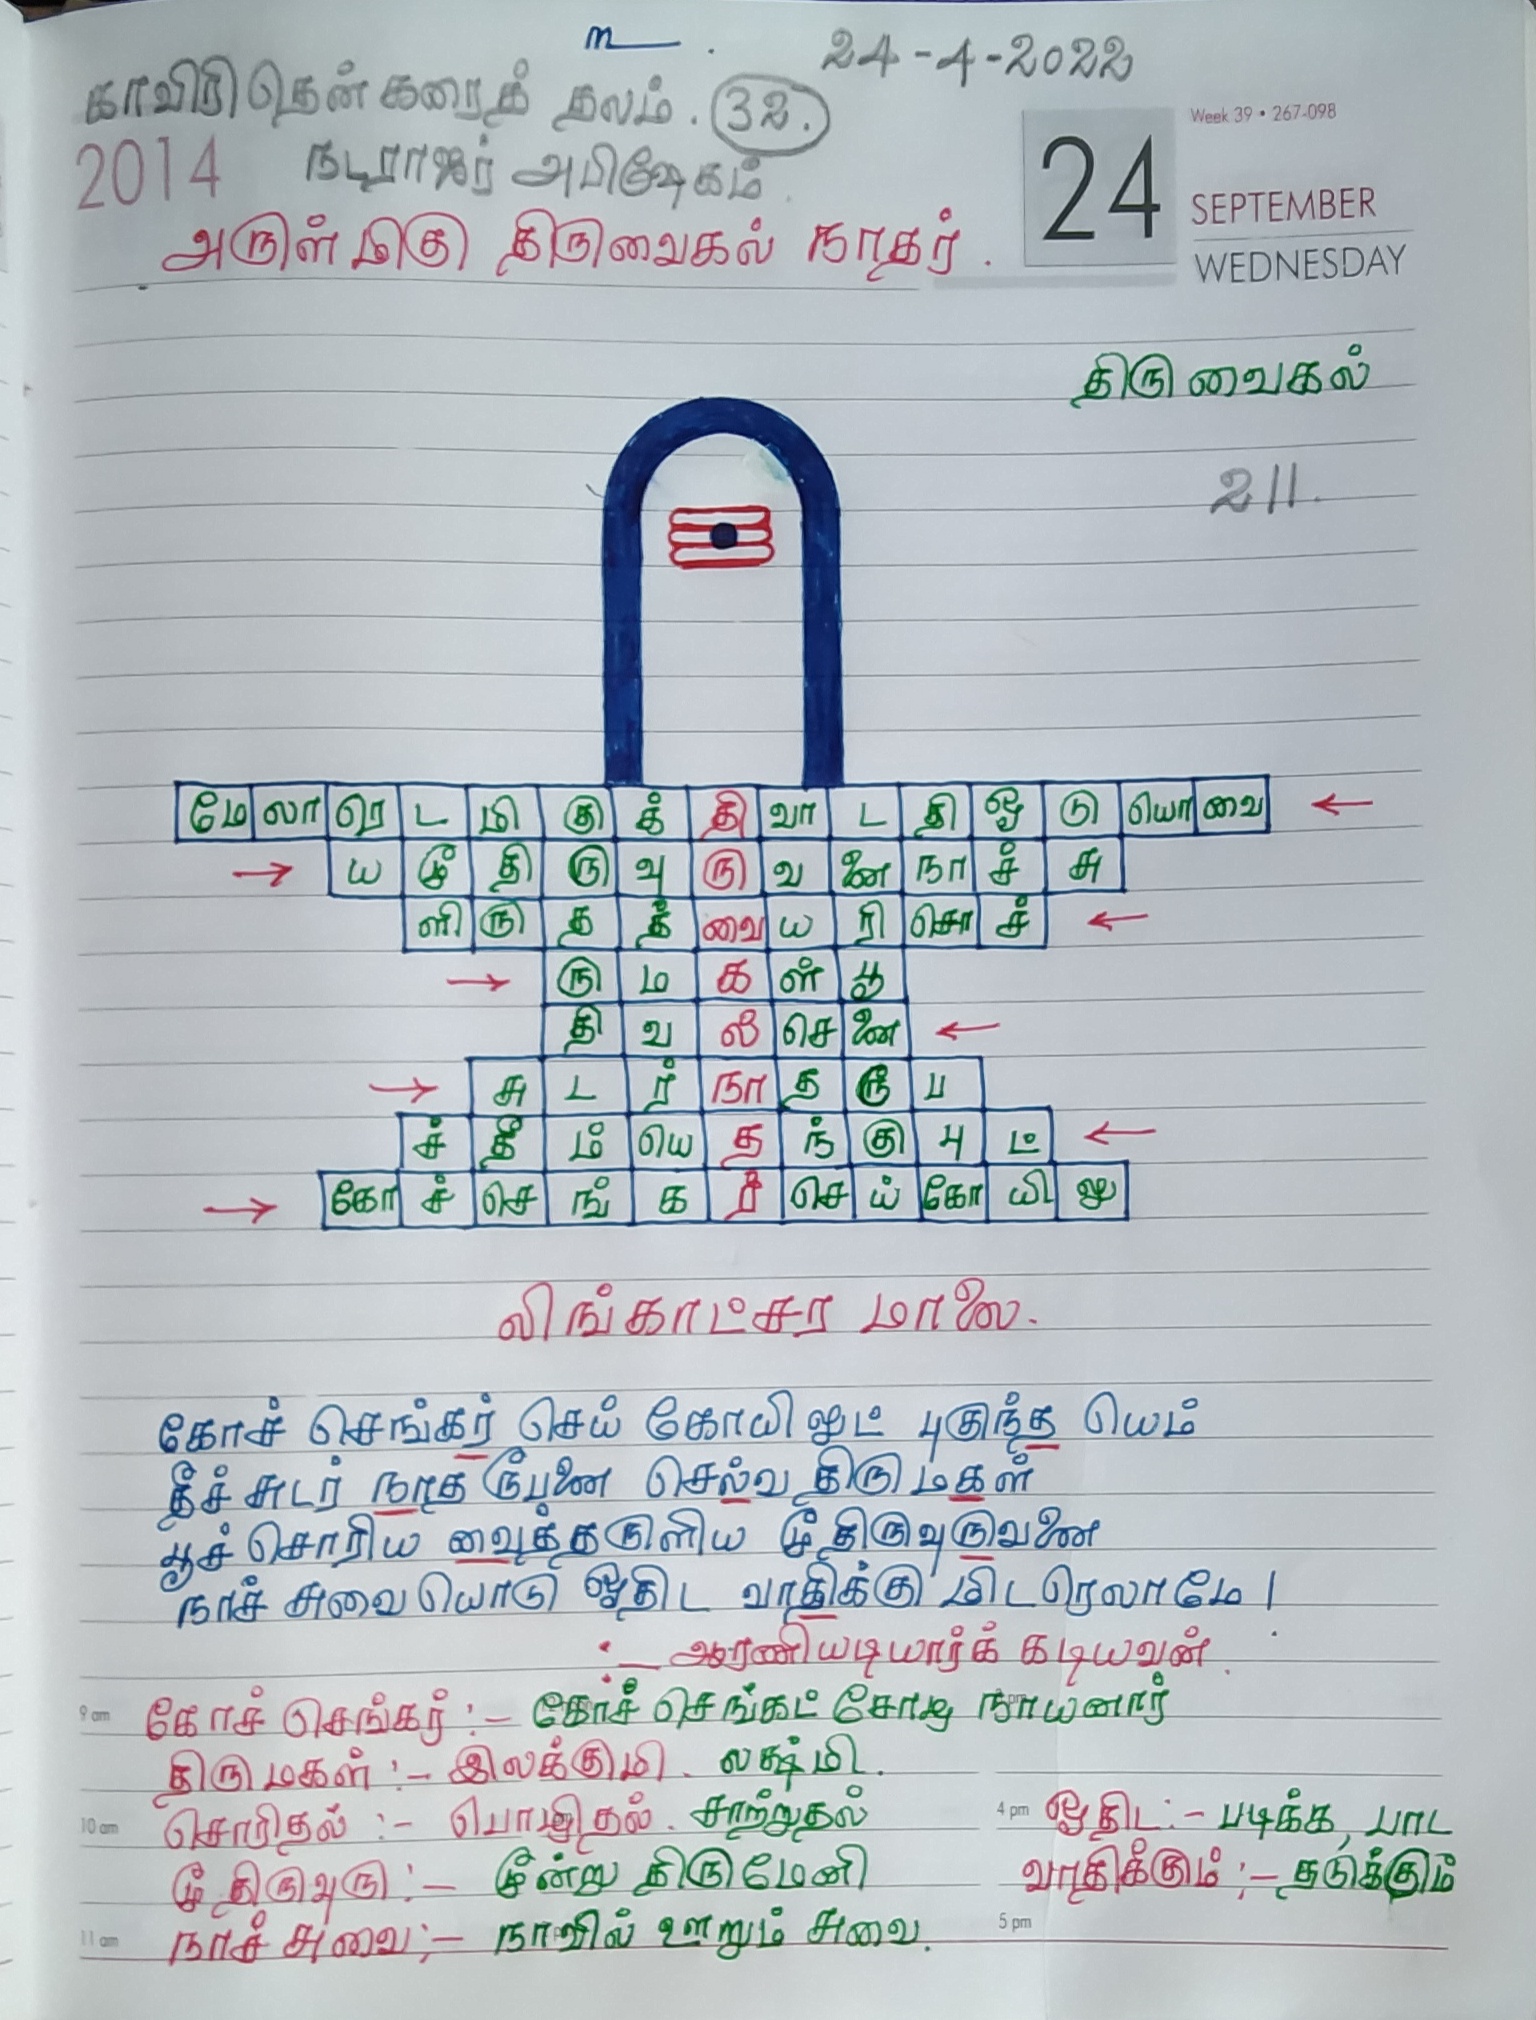 உ
24-4-2022
காவிரி தென்கரைத் தலம். 32.
Week 39 • 267-098
2014
நடராஜர் அபிஷேகம்.
24
SEPTEMBER
WEDNESDAY
அருள்மிகு திருவைகல் நாதர்.
திருவைகல்
211.
மே லா ரெ ட மி கு க் தி வா ட தி ஓ டு யொ வை ←
→ ய மூ தி ரு வு ரு வ னை நா ச் சு
ளி ரு த த் வை ய ரி சொ ச் ←
→ ரு ம க ள் பூ
தி வ ல் செ னை ←
→ சு ட ர் நா த ரூ ப
ச் தீ ம் யெ த ந் கு பு ட் ←
→ கோ ச் செ ங் க ர் செ ய் கோ யி லு
லிங்காட்சர மாலை.
கோச் செங்கர் செய் கோயிலுட் புகுந்த யெம்
தீச் சுடர் நாத ரூபனை செல்வ திருமகள்
பூச் சொரிய வைத்தருளிய மூ திருவுருவனை
நாச் சுவையொடு ஓதிட வாதிக்கு மிடரெலாமே |
:_ ஆரணியடியார்க் கடியவன்.
9 am
கோச் செங்கர் :- கோச் செங்கட் சோழ நாயனார்
திருமகள் :- இலக்குமி. லக்ஷ்மி.
10 am
சொரிதல் :- பொழிதல். சாற்றுதல்
4 pm
ஓதிட :- படிக்க, பாட
மூ திருவுரு :- மூன்று திருமேனி
வாதிக்கும் :- தடுக்கும்
11 am
நாச் சுவை :- நாவில் ஊறும் சுவை.
5 pm